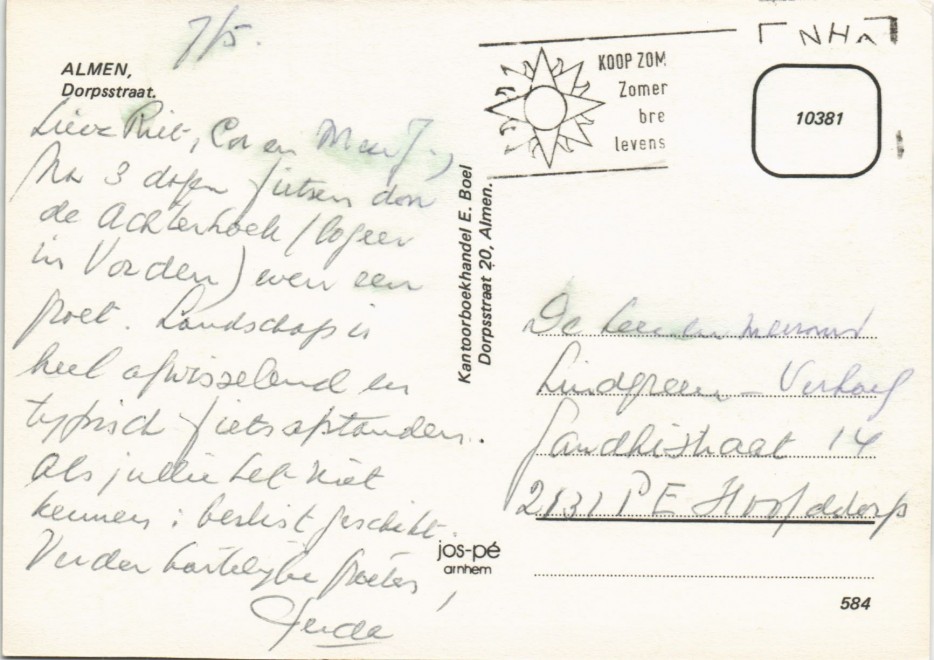 7/5.
ALMEN,
Dorpsstraat.
Lieve Riet, Cor en
Na 3 dagen fietsen door
de Achterhoek (logeer
in Vorden) even een
groet. Landschap is
heel afwisselend en
typisch fietsafstanden.
Als jullie het niet
kennen: beslist geschikt.
Verder hartelijke groeten,
Gerda
Kantoorboekhandel E. Boel
Dorpsstraat 20, Almen.
jos-pé
arnhem
KOOP ZOM
Zomer
bre
levens
NHA
10381
De heer en mevrouw
Lindgreen - Verhoef
Gandhistraat 14
2131 PE Hoofddorp
584